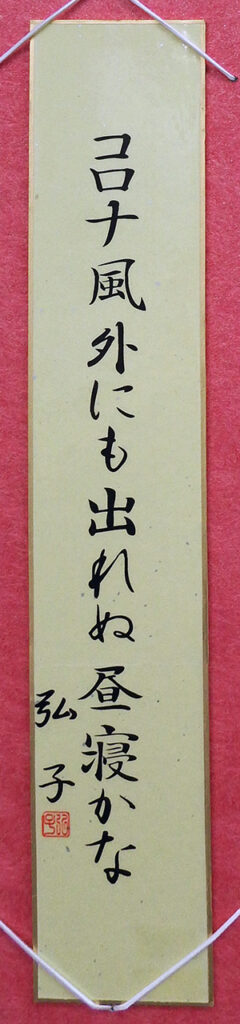 コロナ風外にも出れぬ昼寝かな
弘子